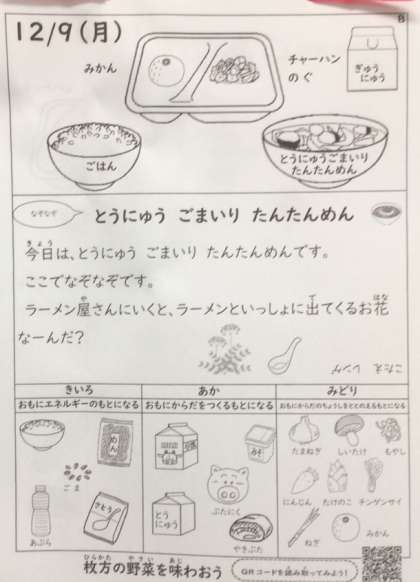 B
12/9(月)
みかん
チャーハン
のぐ
ぎゅう
にゅう
ごはん
とうにゅうごまいり
たんたんめん
なぞなぞ
とうにゅう ごまいり たんたんめん
きょう
今日は、とうにゅう ごまいり たんたんめんです。
ここでなぞなぞです。
や で はな
ラーメン屋さんにいくと、ラーメンといっしょに出てくるお花
なーんだ?
こたえ レンゲ
きいろ
あか
みどり
おもにエネルギーのもとになる
おもにからだをつくるもとになる
おもにからだのちょうしをととのえるもとになる
めん
ごま
あぶら
さとう
みそ
とう
にゅう
ぶたにく
やきぶた
たまねぎ
しいたけ
もやし
にんじん
たけのこ
チンゲンサイ
ねぎ
みかん
ひらかた やさい あじ
枚方の野菜を味わおう
QRコードを読み取ってみよう!